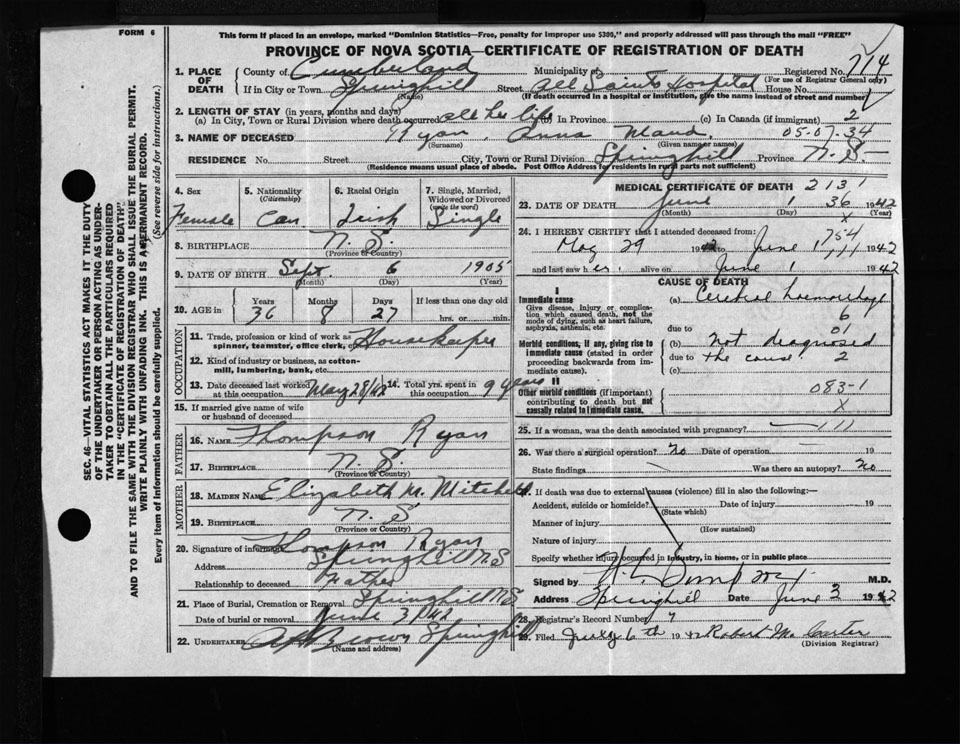 FORM 6
This form if placed in an envelope, marked "Dominion Statistics—Free, penalty for improper use $300," and properly addressed will pass through the mail "FREE"
PROVINCE OF NOVA SCOTIA—CERTIFICATE OF REGISTRATION OF DEATH
1. PLACE OF DEATH
County of Cumberland Municipality of Registered No. 714
(For use of Registrar General only)
If in City or Town Springhill Street All Saints Hospital House No.
(Name) (If death occurred in a hospital or institution, give the name instead of street and number)
2. LENGTH OF STAY (in years, months and days)
(a) In City, Town or Rural Division where death occurred all her life (b) In Province (c) In Canada (if immigrant) 2
3. NAME OF DECEASED Ryan, Anna Maud. 05-07-34
(Surname) (Given name or names)
RESIDENCE No. Street City, Town or Rural Division Springhill Province N.S.
(Residence means usual place of abode. Post Office Address for residents in rural parts not sufficient)
4. Sex Female
5. Nationality (Citizenship) Can
6. Racial Origin Irish
7. Single, Married, Widowed or Divorced (write the word) Single
8. BIRTHPLACE N.S.
(Province or Country)
9. DATE OF BIRTH Sept. 6 1905
(Month) (Day) (Year)
10. AGE in Years 36 Months 8 Days 27 If less than one day old hrs. or min.
OCCUPATION
11. Trade, profession or kind of work as spinner, teamster, office clerk, etc. Housekeeper
12. Kind of industry or business, as cotton-mill, lumbering, bank, etc.
13. Date deceased last worked at this occupation May 28/42 14. Total yrs. spent in this occupation 9 years
15. If married give name of wife or husband of deceased
FATHER
16. NAME Thompson Ryan
17. BIRTHPLACE N.S.
(Province or Country)
MOTHER
18. MAIDEN NAME Elizabeth M. Mitchell
19. BIRTHPLACE N.S
(Province or Country)
20. Signature of informant Thompson Ryan
Address Springhill N.S
Relationship to deceased Father
21. Place of Burial, Cremation or Removal Springhill N.S
Date of burial or removal June 3/42
22. UNDERTAKER Brown Springhill
(Name and address)
MEDICAL CERTIFICATE OF DEATH 2131
23. DATE OF DEATH June 1 36 1942
(Month) (Day) X (Year)
24. I HEREBY CERTIFY that I attended deceased from: 754
May 29 1942 to June 1 111 1942
and last saw her alive on June 1 1942
CAUSE OF DEATH
I
Immediate cause
Give disease, injury or complication which caused death, not the mode of dying, such as heart failure, asphyxia, asthenia, etc.
(a) Cerebral haemorrhage
6
due to 01
Morbid conditions, if any, giving rise to immediate cause (stated in order proceeding backwards from immediate cause).
(b) not diagnosed
due to the cause 2
(c)
II
Other morbid conditions (if important) contributing to death but not causally related to immediate cause.
083-1
X
25. If a woman, was the death associated with pregnancy? — 111
26. Was there a surgical operation? no Date of operation 19
State findings Was there an autopsy? no
27. If death was due to external causes (violence) fill in also the following:—
Accident, suicide or homicide? Date of injury 19
(State which)
Manner of injury
(How sustained)
Nature of injury
Specify whether injury occurred in industry, in home, or in public place
Signed by M.D.
Address Springhill Date June 3 1942
28. Registrar's Record Number 7
29. Filed July 6th 1942 Robert M. Carter
(Division Registrar)
SEC. 46—VITAL STATISTICS ACT MAKES IT THE DUTY
OF THE UNDERTAKER OR PERSON ACTING AS UNDER-
TAKER TO OBTAIN ALL THE PARTICULARS REQUIRED
IN THE "CERTIFICATE OF REGISTRATION OF DEATH"
AND TO FILE THE SAME WITH THE DIVISION REGISTRAR WHO SHALL ISSUE THE BURIAL PERMIT.
WRITE PLAINLY WITH UNFADING INK. THIS IS A PERMANENT RECORD.
Every item of information should be carefully supplied. (See reverse side for instructions.)